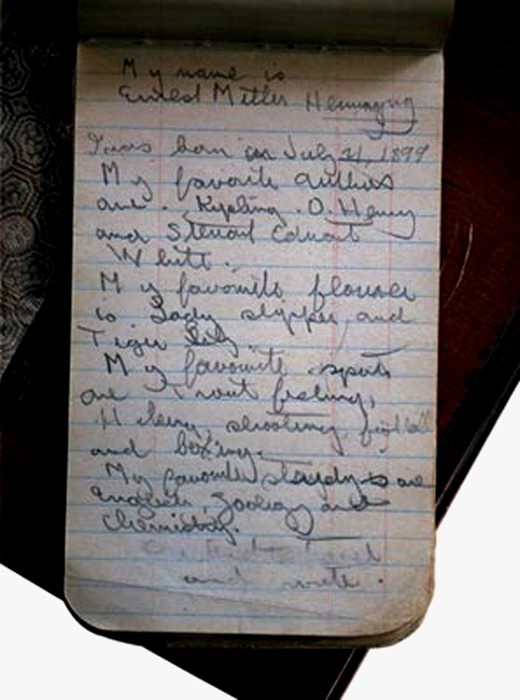 My name is
Ernest Miller Hemingway
I was born in July 21, 1899
My favorite authors
are . Kipling . O. Henry
and Steuart Edward
White .
My favorite flower
is Lady slipper and
Tiger lily .
My favorite sports
are Trout fishing,
Hiking, shooting, football
and boxing.
My favorite studys are
English, Zoology and
Chemistry.
I intend to travel
and write .